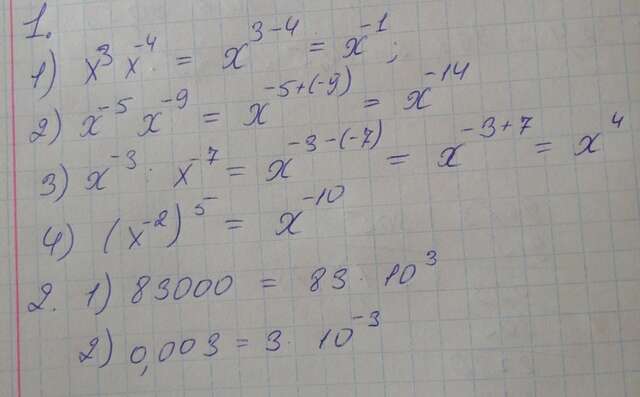 1.
1) x³ x⁻⁴ = x³⁻⁴ = x⁻¹;
2) x⁻⁵ x⁻⁹ = x⁻⁵⁺⁽⁻⁹⁾ = x⁻¹⁴
3) x⁻³ : x⁻⁷ = x⁻³⁻⁽⁻⁷⁾ = x⁻³⁺⁷ = x⁴
4) (x⁻²)⁵ = x⁻¹⁰
2. 1) 83000 = 83 · 10³
2) 0,003 = 3 · 10⁻³